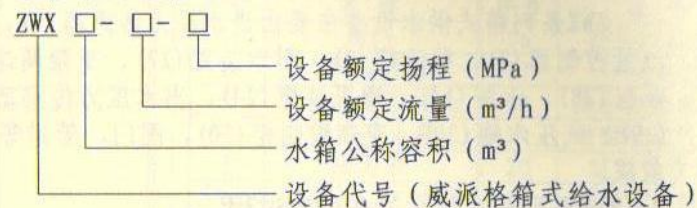 ZWX □-□-□
设备额定扬程（MPa）
设备额定流量（m³/h）
水箱公称容积（m³）
设备代号（威派格箱式给水设备）